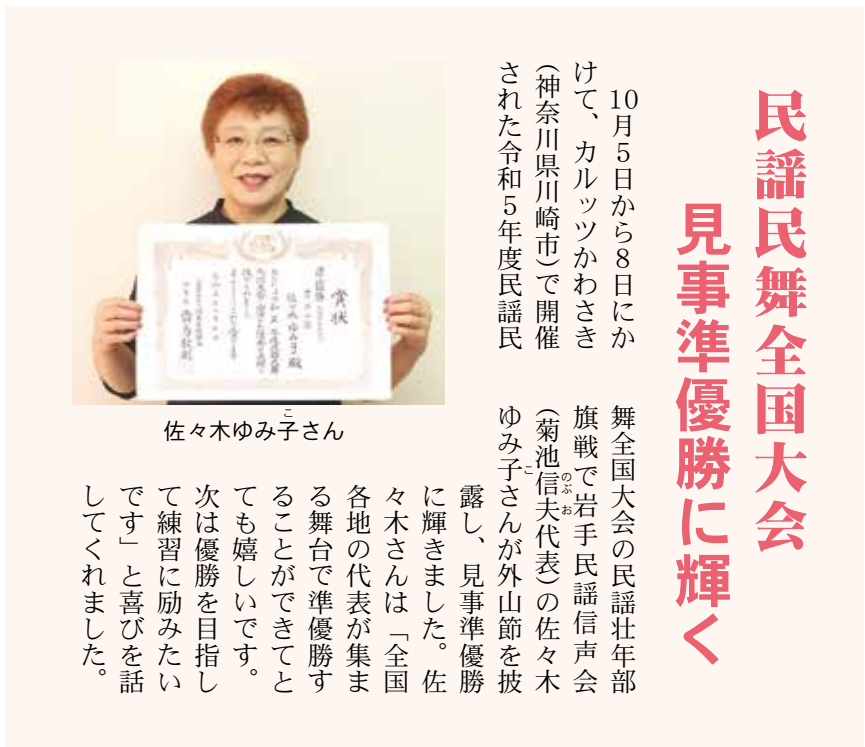 民謡民舞全国大会
見事準優勝に輝く
10月5日から8日にか
けて、カルッツかわさき
(神奈川県川崎市)で開催
された令和5年度民謡民
舞全国大会の民謡壮年部
旗戦で岩手民謡信声会
(菊池信夫代表)の佐々木
のぶ お
ゆみ子さんが外山節を披
こ
露し、見事準優勝
に輝きました。佐
々木さんは「全国
各地の代表が集ま
る舞台で準優勝す
ることができてと
ても嬉しいです。
次は優勝を目指し
て練習に励みたい
です」と喜びを話
してくれました。
賞状
準優勝
佐々木ゆみ子殿
こ
佐々木ゆみ子さん